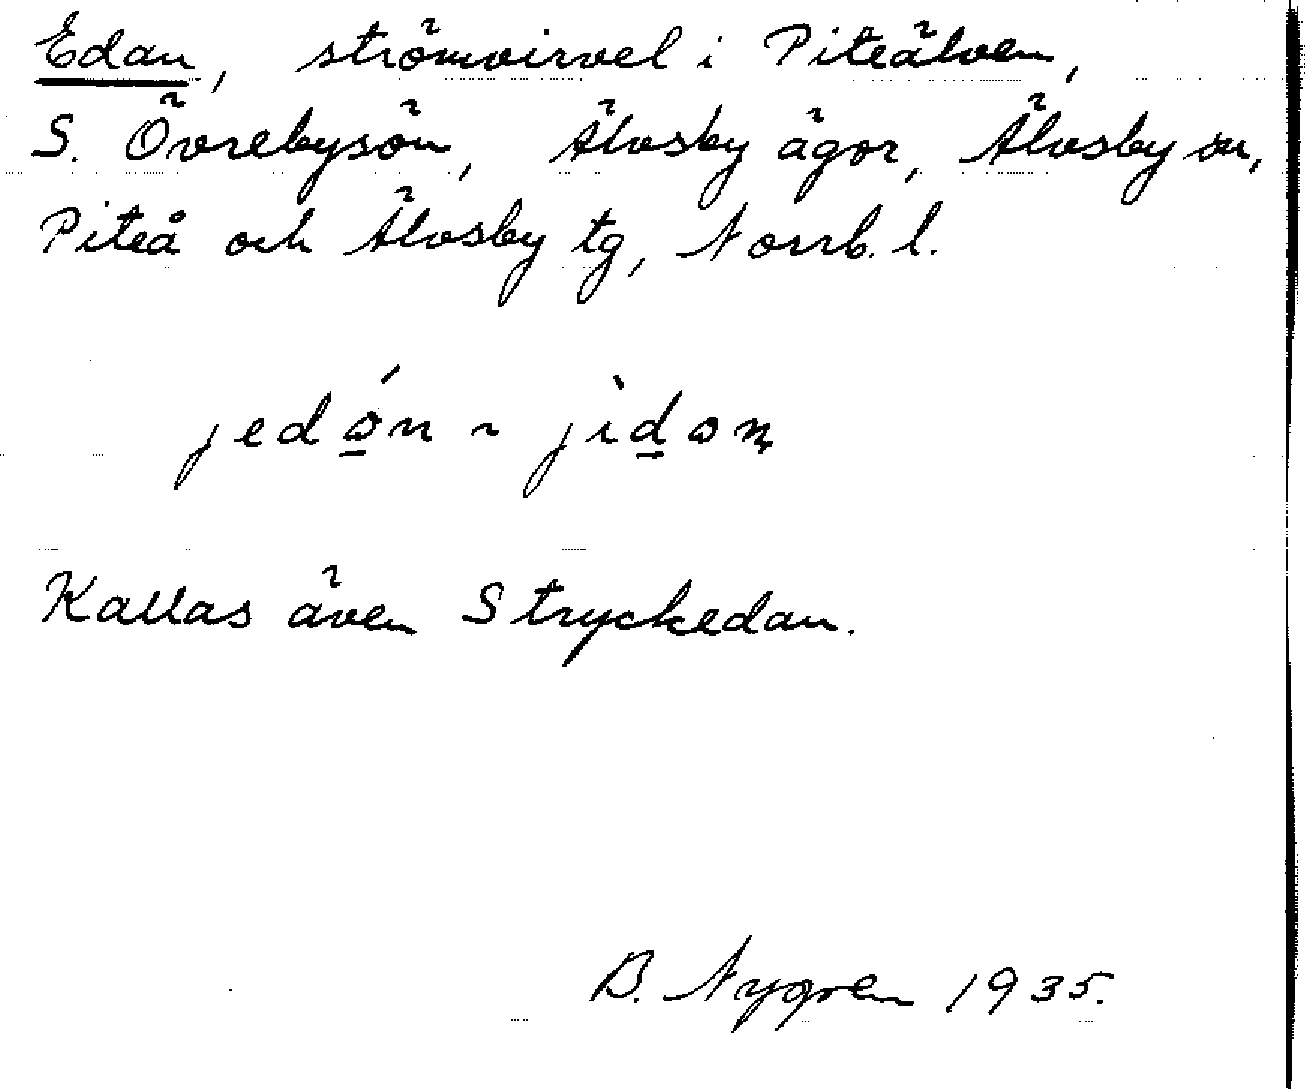 Edan, strömvirvel i Piteälven,
S. Övrebysön, Älvsby ägor, Älvsby sn,
Piteå och Älvsby tg, Norrb. l.
jedǿn ~ jìdɷn
Kallas även Stryckedan.
B. Nygren 1935.